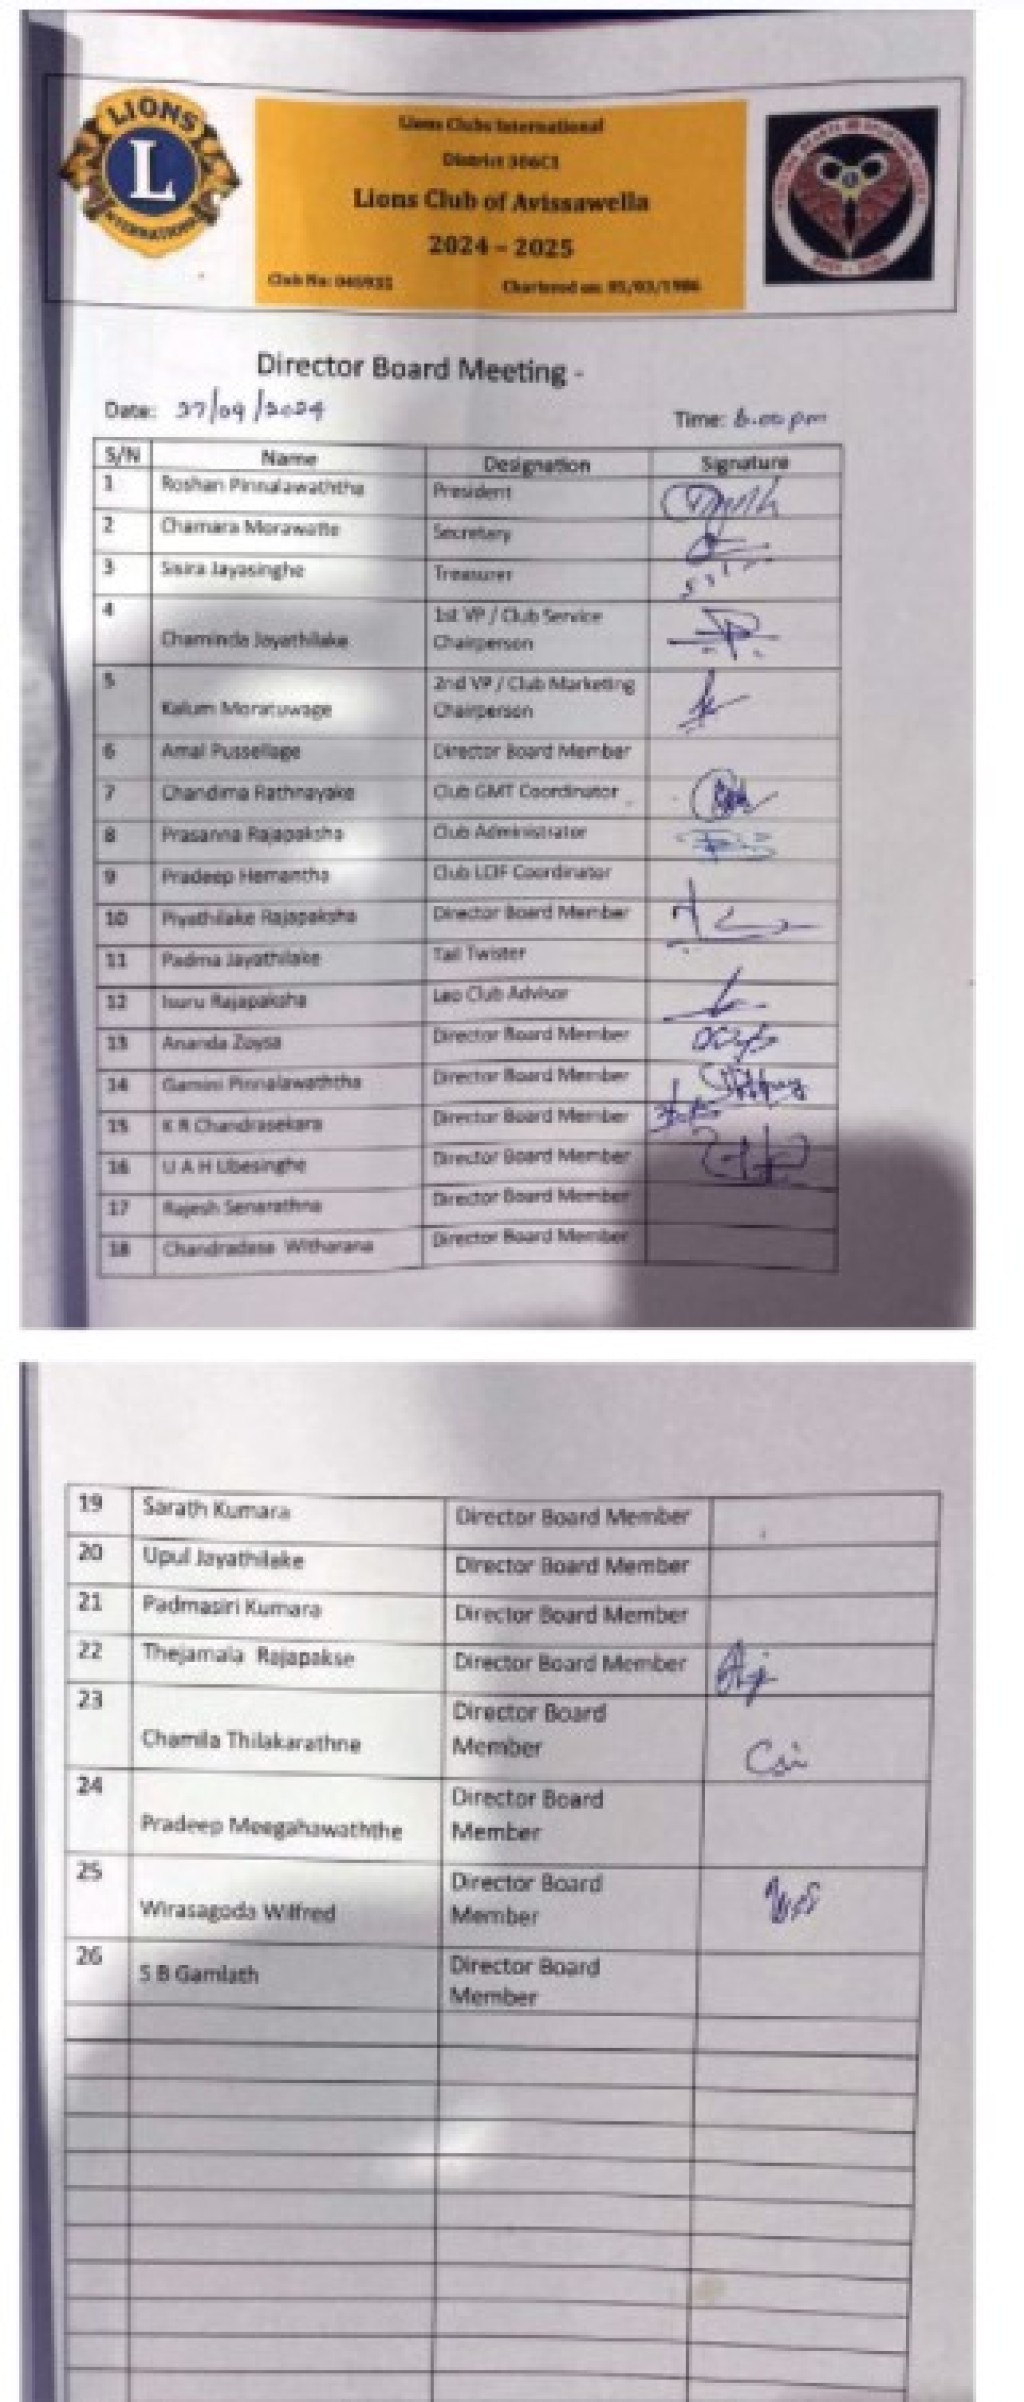 LIONS
L
INTERNATIONAL
Lions Clubs International
District 306C1
Lions Club of Avissawella
2024 – 2025
Club No: 045935 Chartered on: 05/03/1986
Director Board Meeting -
Date: 27/09/2024 Time: 6.00 pm
S/N Name Designation Signature
1 Roshan Pinnalawaththa President
2 Chamara Morawatte Secretary
3 Sisira Jayasinghe Treasurer
4 Chaminda Jayathilake 1st VP / Club Service
Chairperson
5 Kalum Moratuwage 2nd VP / Club Marketing
Chairperson
6 Amal Pussellage Director Board Member
7 Chandima Rathnayake Club GMT Coordinator
8 Prasanna Rajapaksha Club Administrator
9 Pradeep Hemantha Club LCIF Coordinator
10 Piyathilake Rajapaksha Director Board Member
11 Padma Jayathilake Tail Twister
12 Isuru Rajapaksha Leo Club Advisor
13 Ananda Zoysa Director Board Member
14 Gamini Pinnalawaththa Director Board Member
15 K R Chandrasekara Director Board Member
16 U A H Ubesinghe Director Board Member
17 Rajesh Senarathna Director Board Member
18 Chandradasa Witharana Director Board Member
19 Sarath Kumara Director Board Member
20 Upul Jayathilake Director Board Member
21 Padmasiri Kumara Director Board Member
22 Thejamala Rajapakse Director Board Member
23 Chamila Thilakarathne Director Board
Member
24 Pradeep Meegahawaththe Director Board
Member
25 Wirasagoda Wilfred Director Board
Member
26 S B Gamlath Director Board
Member